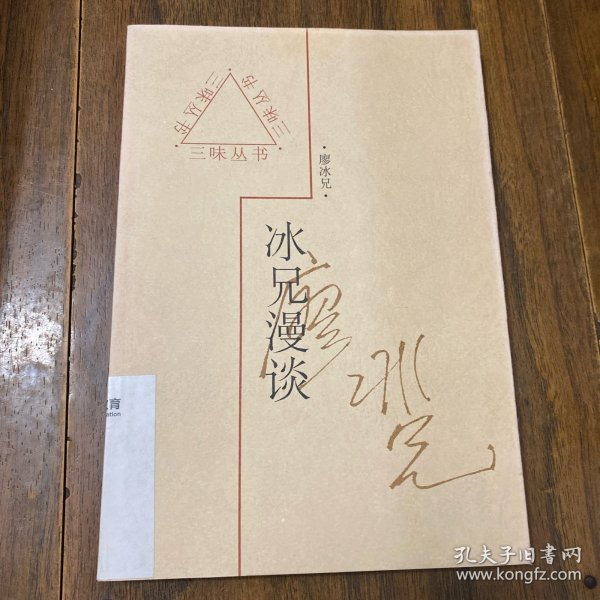 三味丛书
三味丛书
三味丛书
·廖冰兄·
冰兄漫谈
廖冰兄
育
ation
孔夫子旧书网
www.kongfz.com